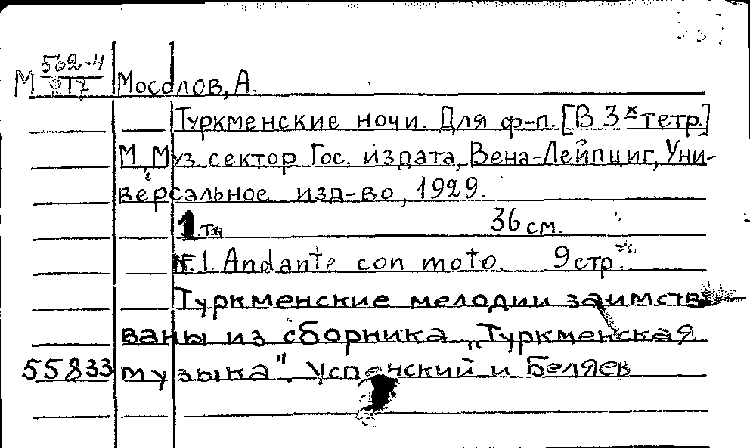 М 562-4 Мосолов, А.
Туркменские ночи. Для ф-п. [В 3х тетр.]
М., Муз. сектор Гос. издата, Вена-Лейпциг, Уни-
версальное изд-во, 1929.
36 см.
1. Andante con moto. 9 стр.
Туркменские мелодии заимство
ваны из сборника „Туркменская
55833 музыка". Успенский и Беляев